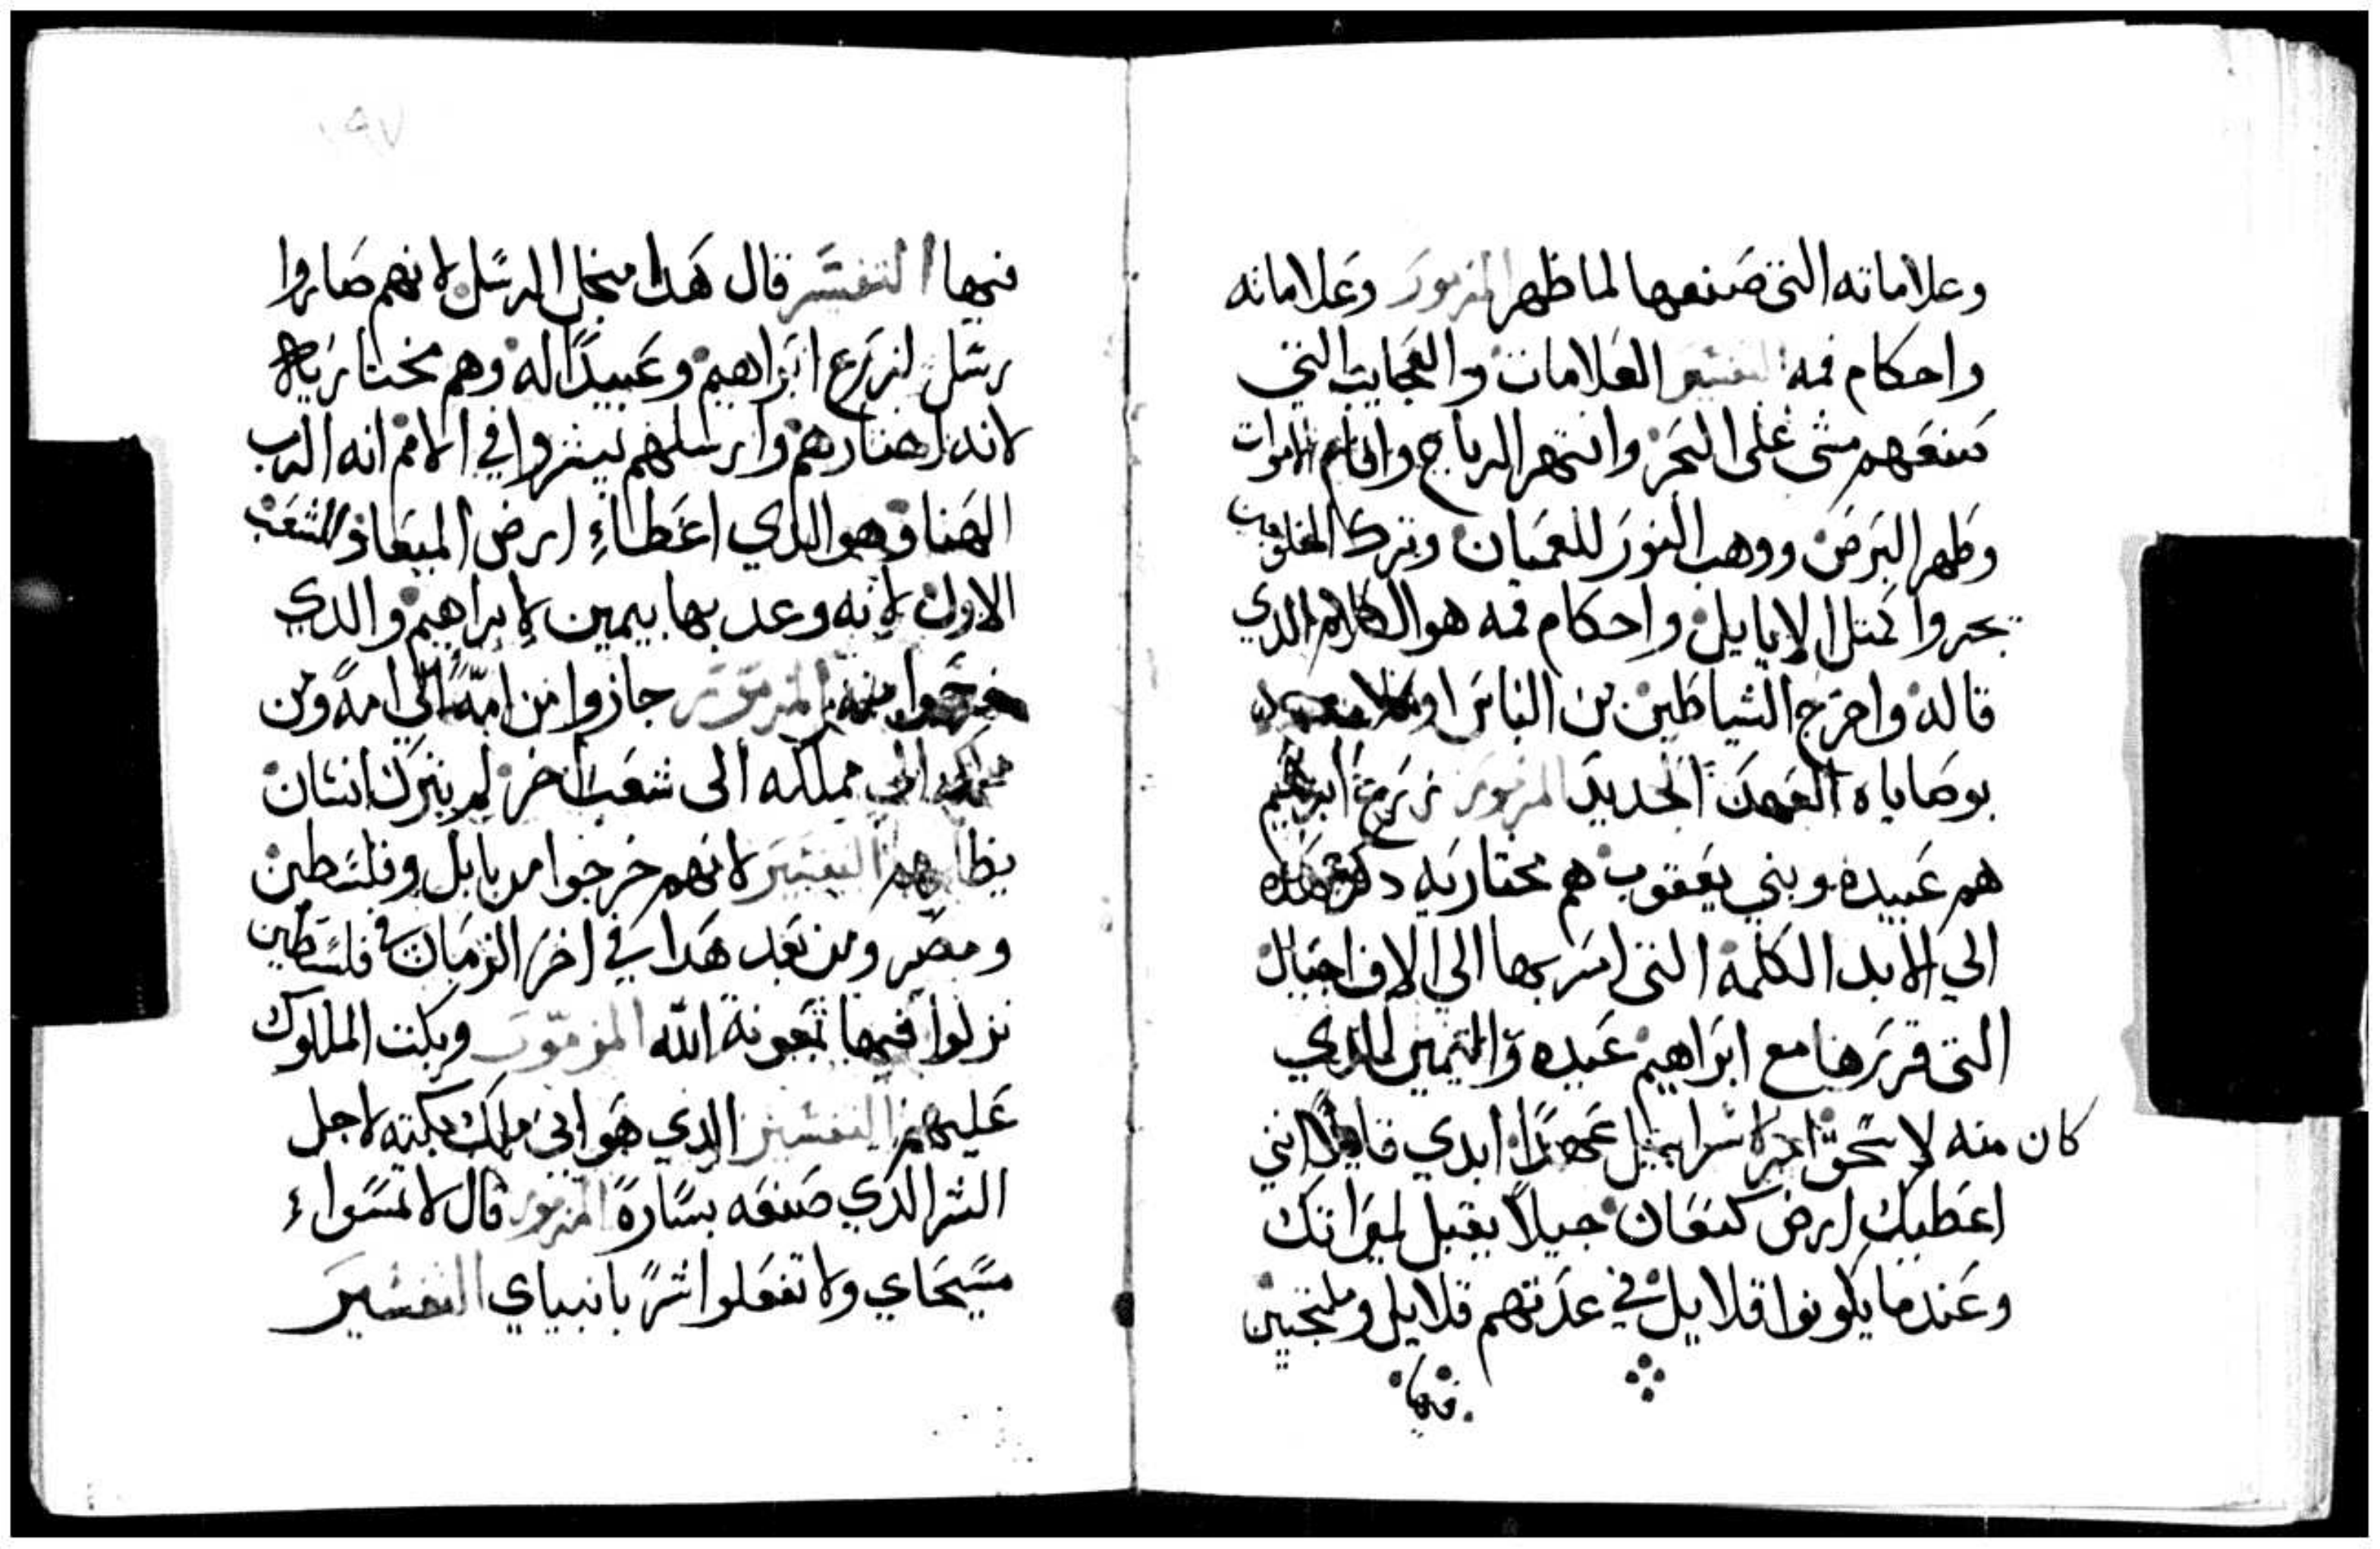 وعلاماته التي صنعها لما ظهر المزمور وعلاماته
واحكام فمه التفسير العلامات والعجايب التي
صنعهم مشى على البحر وانتهر الرياح واقام الاموات
وطهر البرص ووهب النور للعميان وترك المخلعين
يجروا كمثل الايايل واحكام فمه هو الكلام الدي
قاله واخرج الشياطين من الناس
بوصاياه العهد الجديد المزمور زرع ابراهيم
هم عبيده وبني يعقوب هم مختاريه دكر عهده
الي الابد الكلمة التي امر بها الي الاف اجيال
التي قررها مع ابراهيم عبده واليمين الدي
كان منه لاسحق امرا لاسراييل عهدا ابدي قايلا انني
اعطيك ارض كنعان حبلا يقبل لميراتك
وعندما يكونوا قلايل في عدتهم قلايل وملتجيين
فيها
١٩٧
فيها التفسير قال هدا منجل الرسل لانهم صاروا
رسل لزرع ابراهيم وعبيدا له وهم مختاريه
لانه اختارهم وارسلهم يبشروا في الامم انه الرب
الهنا وهو الدي اعطاء ارض الميعاد للشعب
الاول لانه وعد بها بيمين لابراهيم والدي
خرجوا منه المزمور جازوا من امة الي امة ومن
مملكه الى شعب اخر لم يترك انسان
يظلمهم التفسير لانهم خرجوا من بابل وفلسطين
ومصر ومن بعد هدا في اخر الزمان في فلسطين
نزلوا فيها بمعونة الله المزمور وبكت الملوك
عليهم التفسير الدي هو ابي ملك بكته لاجل
الشر الدي صنعه بسارة المزمور قال لا تمسواء
مسيحاي ولا تفعلوا شرا بانبياي التفسير